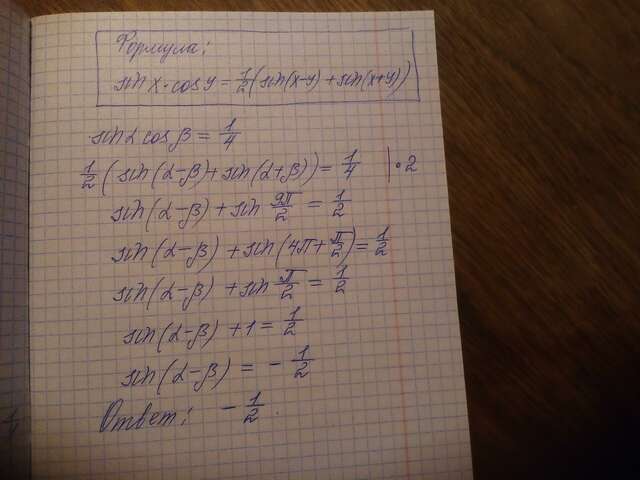 Формула:
sin x · cos y = 1/2 (sin(x-y) + sin(x+y))
sin α cos β = 1/4
1/2 (sin(α-β) + sin(α+β)) = 1/4 | · 2
sin(α-β) + sin 9π/2 = 1/2
sin(α-β) + sin(4π + π/2) = 1/2
sin(α-β) + sin π/2 = 1/2
sin(α-β) + 1 = 1/2
sin(α-β) = - 1/2
Ответ: - 1/2.